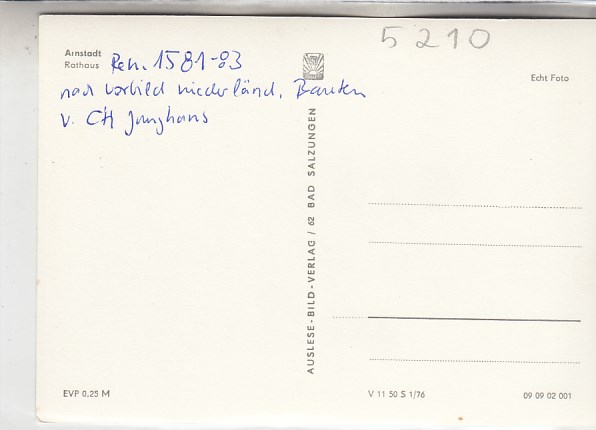 5210
Arnstadt
Rathaus
Ren. 1581-83
nach Vorbild niederländ. Bauten
v. CH Junghans
Echt Foto
AUSLESE-BILD-VERLAG / 62 BAD SALZUNGEN
EVP 0,25 M
V 11 50 S 1/76
09 09 02 001